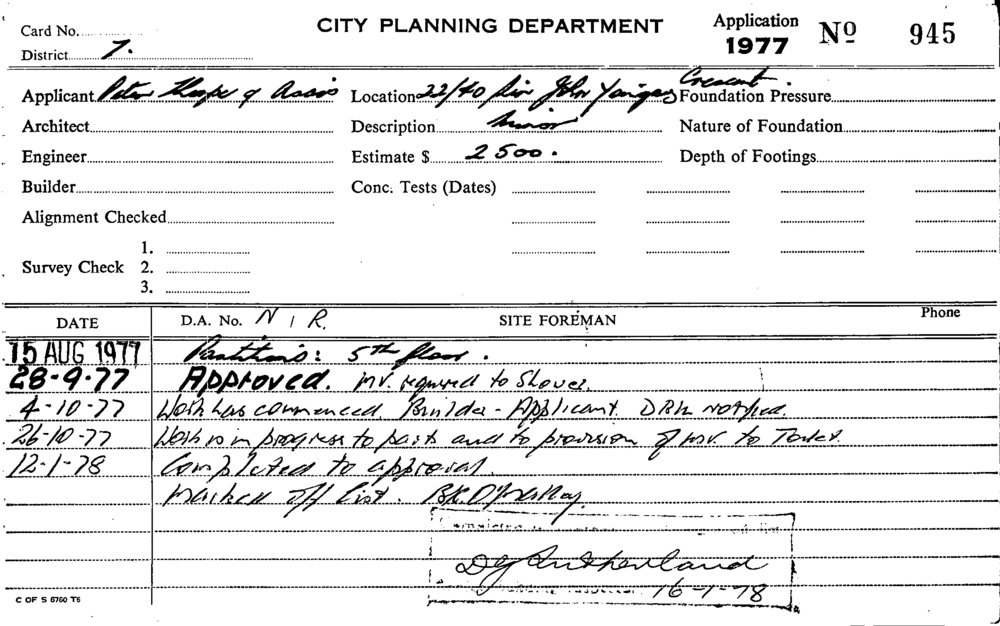 Card No.
CITY PLANNING DEPARTMENT
Application
1977
Nº 945
District 7.
Applicant Peter Thorpe & Assocs Location 22/40 Sir John Youngs Crescent. Foundation Pressure
Architect Description Minor Nature of Foundation
Engineer Estimate $ 2500. Depth of Footings
Builder Conc. Tests (Dates)
Alignment Checked
1.
Survey Check 2.
3.
DATE D.A. No. N I R. SITE FOREMAN Phone
15 AUG 1977 Partitions: 5th floor.
28-9-77 Approved. M.V. required to Shower.
4-10-77 Work has commenced. Builder - Applicant. DRH notified.
26-10-77 Work is in progress to parts and to provision of M.V. to Toilet.
12-1-78 Completed to approval.
Marked off list.
D G Sutherland
16-1-78
C OF S 6760 T6